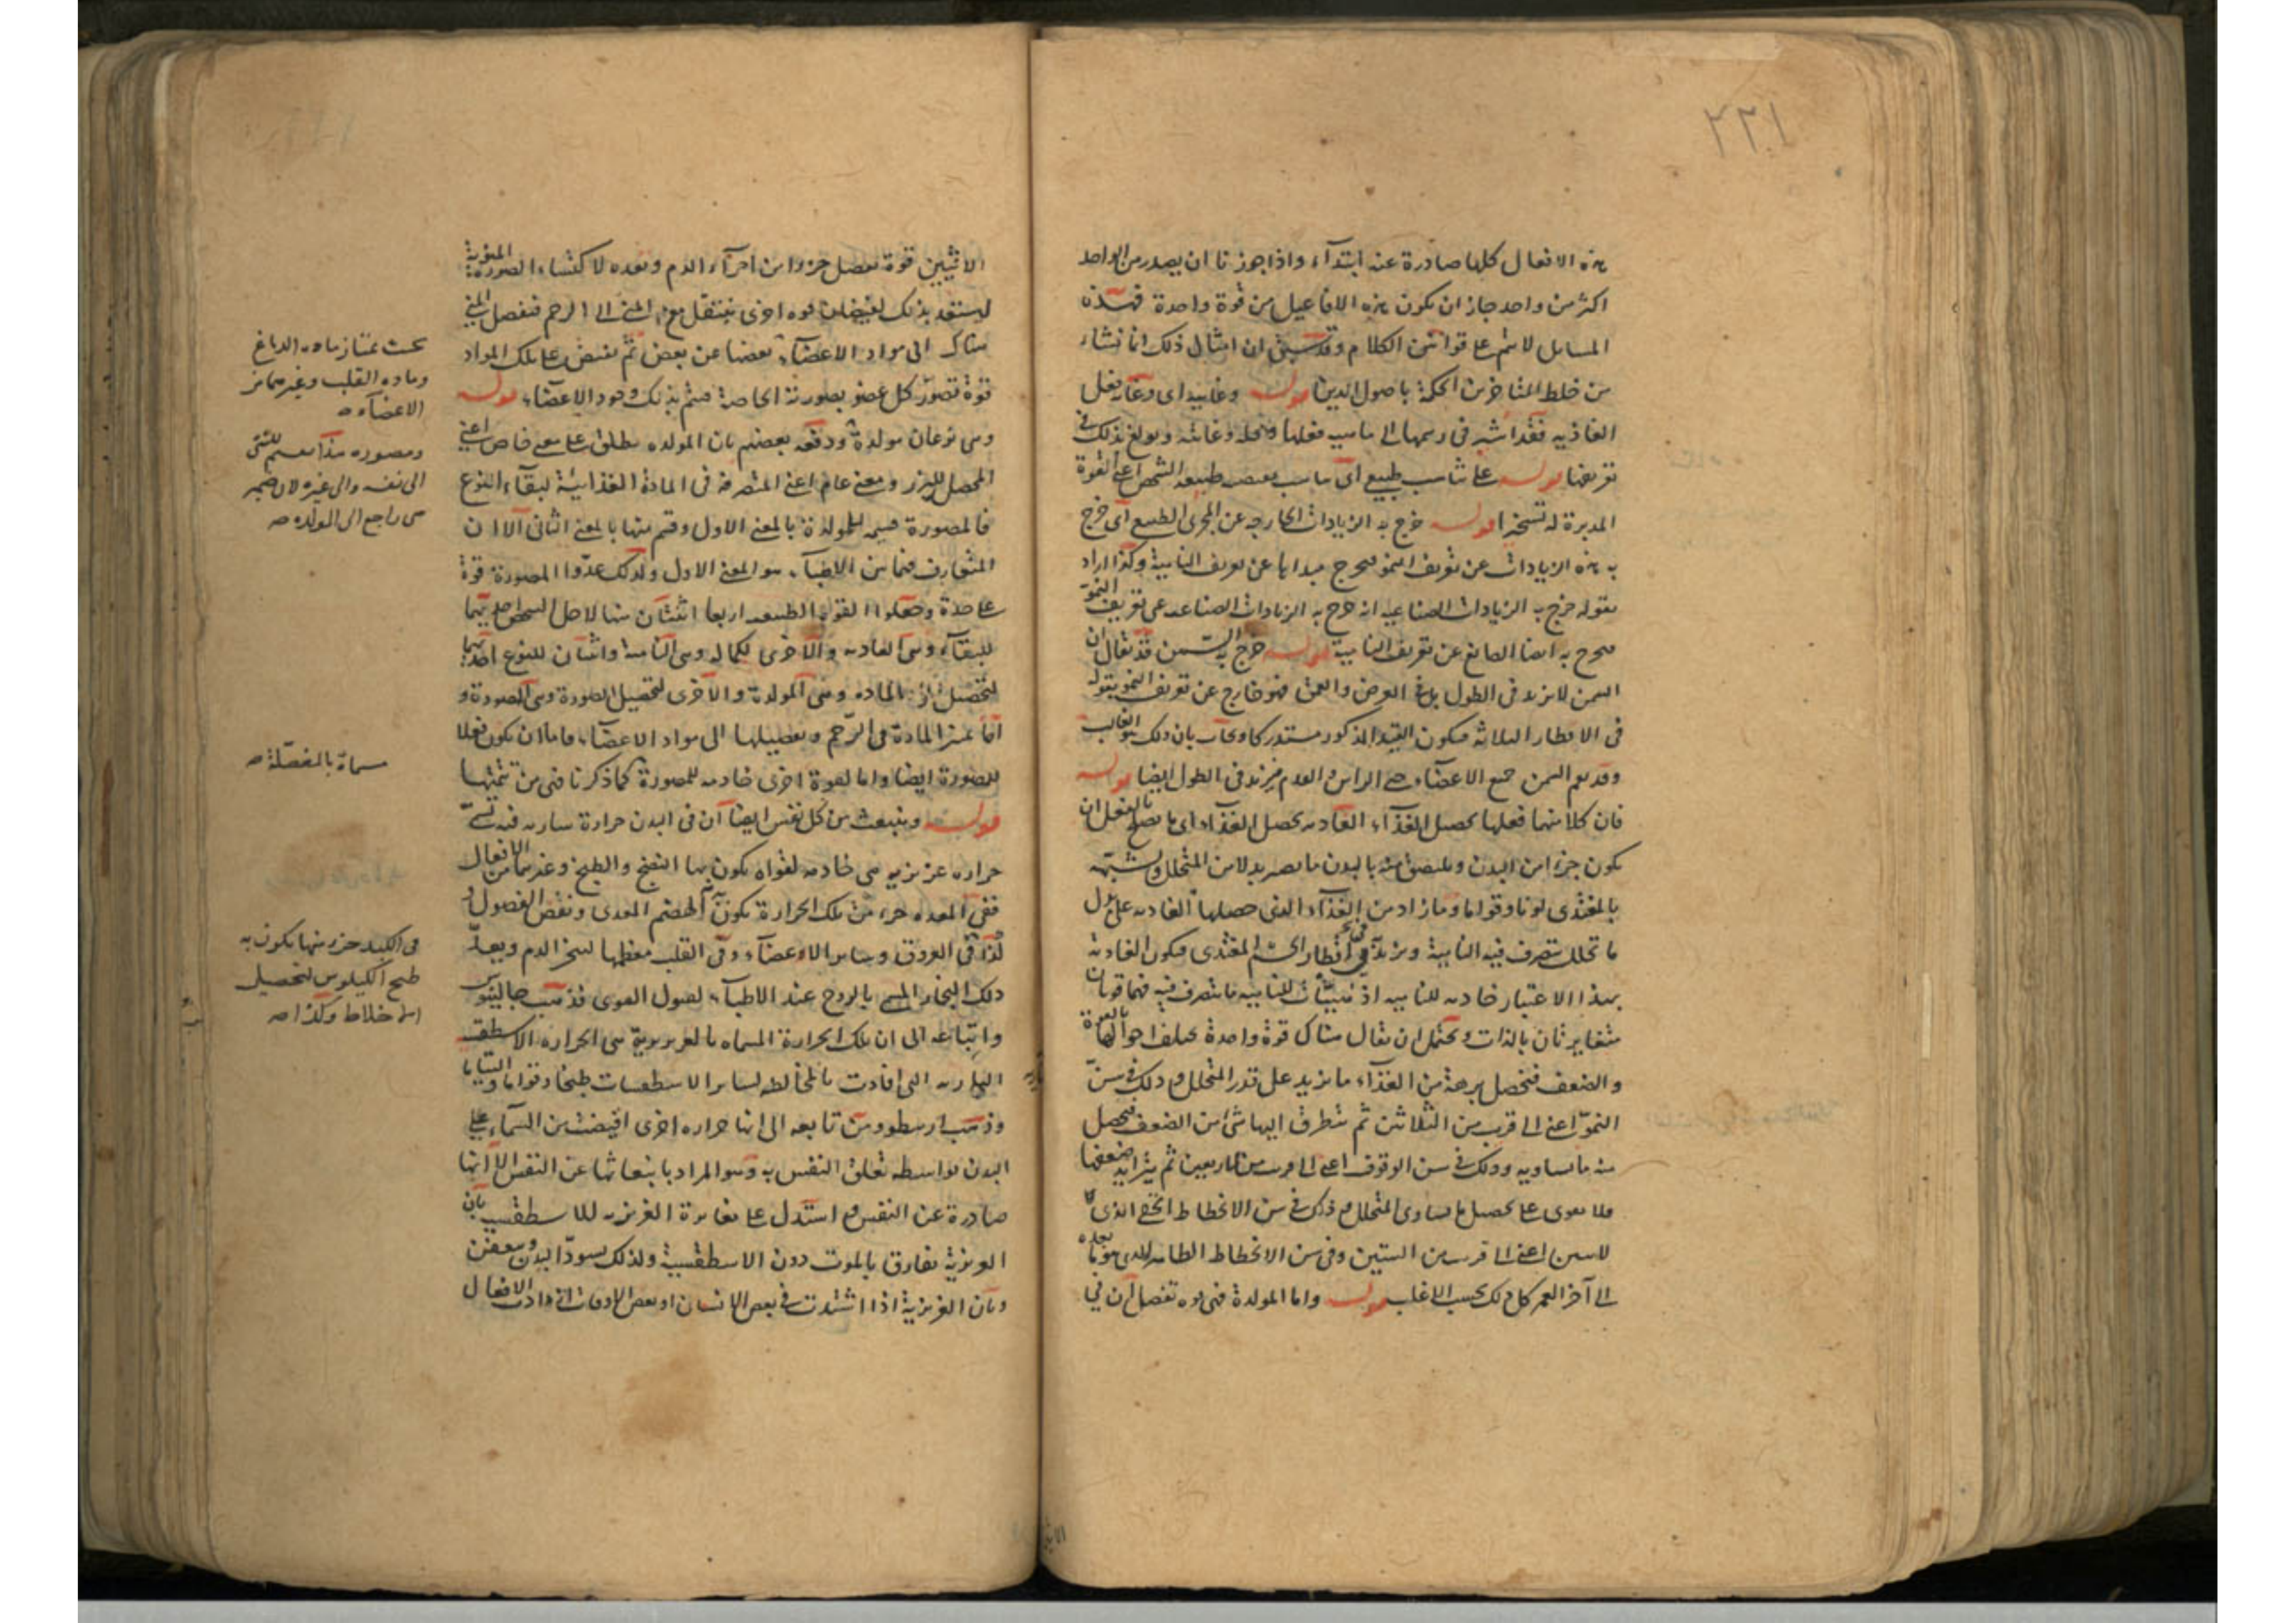 ٢٢١
هذه الافعال كلها صادرة عنه ابتدآء واذا جوزنا ان يصدر من الواحد
اكثر من واحد جاز ان يكون هذه الافاعيل من قوة واحدة فهذه
المسايل لا يتم على قوانين الكلام وقد سبق ان امثال ذلك انما نشاء
من خلط المتاخرين الحكمة باصول الدين قوله وغاييه اى وغاية فعل
الغاذيه فقد اشير فى رسمها الى ماهيه فعلها ومحله وغايته وبولغ بذلك فى
تعريفها قوله على تناسب طبيعى اى تناسب يقتضيه طبيعة الشخص اعنى القوة
المدبرة له تسخيرا قوله خرج به الزيادات الخارجه عن المجرى الطبيعى اى خرج
به هذه الزيادات عن تعريف النمو فيخرج مبداها عن تعريف النامية وكذا اراد
بقوله خرج به الزيادات الصناعيه انه خرج به الزيادات الصناعيه عن تعريف النمو
فيخرج به ايضا الصانع عن تعريف النامية قوله خرج به السمن قد يقال ان
السمن لا يزيد فى الطول بل فى العرض والعمق فهو خارج عن تعريف النمو بقوله
فى الاقطار الثلاثه فيكون القيد المذكور مستدركا ويجاب بان ذلك هو الغالب
وقد يعم السمن جميع الاعضآء حتى الراس والقدم فيزيد فى الطول ايضا قوله
فان كلا منهما فعلها تحصيل الغذآء الغاذيه تحصل الغذآء اى ما يصلح بالفعل ان
يكون جزءا من البدن ويلتصق منه بالبدن ما يصير بدلا من المتحلل ويشبهه
بالمغتذى لونا وقواما وما زاد من الغذآء الذى حصلها الغاذيه على بدل
ما تحلل يتصرف فيه النامية ويزيد فى اقطار الجسم المغتذى فيكون الغاذية
بهذا الاعتبار خادمه للناميه اذ تهيئات للناميه ما يتصرف فيه فهما قوتان
متغايرتان بالذات ويحتمل ان يقال هناك قوة واحدة يختلف احوالها بالقوة
والضعف فيحصل برهة من الغذآء ما يزيد على قدر المتحلل وذلك فى سن
النمو اعنى الى قريب من الثلاثين ثم يتطرق اليها شئ من الضعف فيحصل
منه ما يساويه وذلك فى سن الوقوف اعنى الى قريب من الاربعين ثم يتزايد ضعفها
فلا يقوى على تحصيل ما يساوى المتحلل وذلك فى سن الانحطاط الخفى الذى
اعنى الى قريب من الستين وفى سن الانحطاط الظاهر الذى هو ما بعده
الى آخر العمر كل ذلك بحسب الاغلب قوله واما المولدة فهى قوه تفصل ان فى
الانثيين قوة تفصل جزءا من اجزآء الدم وتعده لاكتساء الصورة المنوية
ليستعد بذلك لفيضان قوه اخرى ينتقل مع المنى الى الرحم فتفصل المنى
هناك الى مواد الاعضآء بعضها عن بعض ثم يفيض على تلك المواد
قوة تصور كل عضو بصورته الخاصة فيتم بذلك وجود الاعضآء قوله
وهى نوعان مولدة ودفعه بعضهم بان المولده يطلق على معنى خاص اعنى
المحصل للبزر ومعنى عام اعنى المتصرفة فى المادة الغذائية لبقآء النوع
فالمصورة قسيمه للمولدة بالمعنى الاول وقسم منها بالمعنى الثانى الا ان
المتعارف فيما بين الاطبآء هو المعنى الاول ولذلك عدوا المصورة قوة
على حدة وجعلوا القوى الطبيعيه اربعا اثنتان منها لاجل الشخص احديهما
للبقآء وهى الغاذيه والاخرى لكماله وهى النامية واثنتان للنوع احديهما
لتحصيل المادة وهى المولدة والاخرى لتحصيل الصورة وهى المصورة و
اما تميز المادة فى الرحم وتفصيلها الى مواد الاعضآء فاما ان يكون فعلا
للمصورة ايضا واما لقوة اخرى خادمه للمصورة كما ذكرنا فهى من تتمتها
قوله وينبعث من كل نفس ايضا ان فى البدن حرارة ساريه فيه تسمى
حراره غريزيه هى خادمه لقواه يكون بها النضج والطبخ وغيرهما من الافعال
ففى المعده جزء من تلك الحرارة يكون به الهضم المعدى ونفض الفضول و
كذا فى العروق وساير الاعضآء وفى القلب معظمها ليبخر الدم ويعدل
ذلك البخار المسمى بالروح عند الاطبآء لقبول القوى فذهب جالينوس
واتباعه الى ان تلك الحرارة المسماه بالغريزية هى الحراره الاسطقسيه
الناريه التى افادت بالمخالطه لساير الاسطقسات طبخا وقواما والتياما
وذهب ارسطو ومن تابعه الى انها حراره اخرى افيضت من السمآء على
البدن بواسطه تعلق النفس به وهو المراد بانبعاثها عن النفس لا انها
صادرة عن النفس واستدل على مغايرة الغريزيه للاسطقسيه بان
الغريزية تفارق بالموت دون الاسطقسية ولذلك يسود البدن ويتعفن
وبان الغريزية اذا اشتدت فى بعض الانسان او بعض الاوقات ازدادت الافعال
بحيث تمتاز ماده الدماغ
وماده القلب وغيرهما من
الاعضآء صح
ومصوره هذا تقسيم للشئ
الى نفسه والى غيره لان ضمير
هى راجع الى المولده صح
مسماة بالمفصّلة صح
فى الكبد جزء منها يكون به
طبخ الكيلوس لتحصيل
الاخلاط وكذا صح